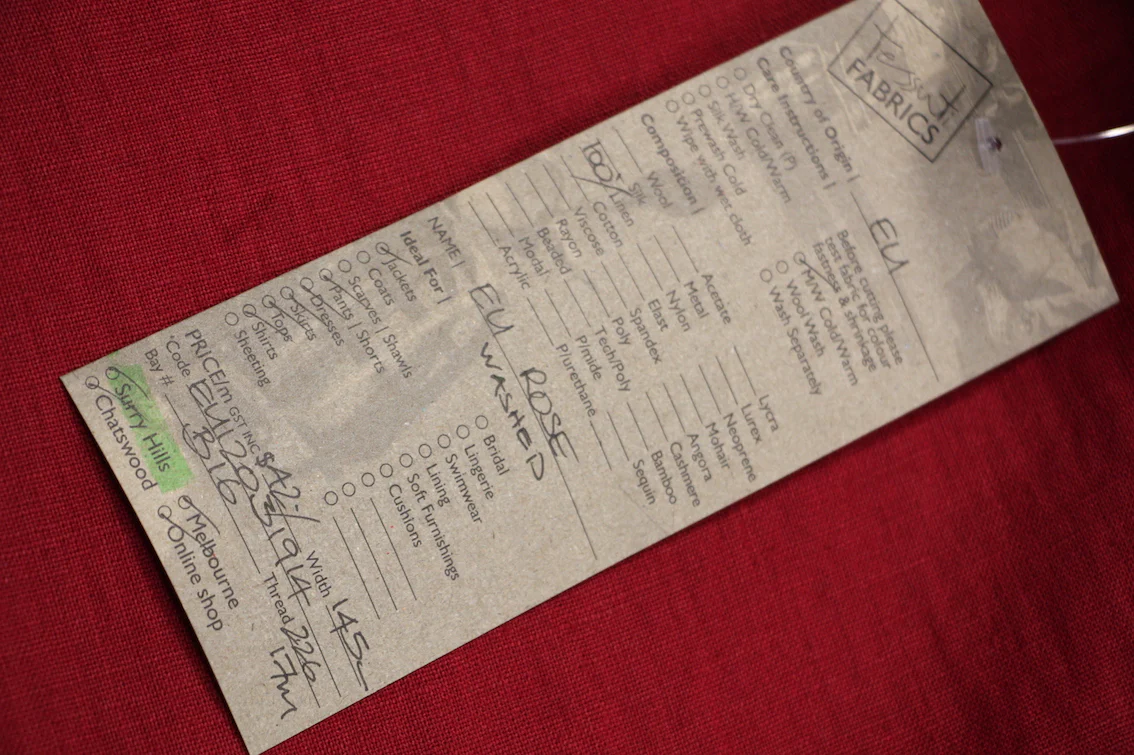 Tessuti
FABRICS
Country of Origin | EU
Care Instructions | Before cutting please
test fabric for colour
fastness & shrinkage
Dry Clean (P) M/W Cold/Warm
H/W Cold/Warm Wool Wash
Silk Wash Wash Separately
Prewash Cold
Wipe with wet cloth
Composition |
Wool Acetate Lycra
Silk Metal Lurex
100% Linen Nylon Neoprene
Cotton Elast Mohair
Viscose Spandex Angora
Rayon Poly Cashmere
Beaded Tech/Poly Bamboo
Modal P/mide Sequin
Acrylic P/urethane
NAME | EU ROSE
WASHED
Ideal For |
Jackets Bridal
Coats Lingerie
Scarves | Shawls Swimwear
Pants | Shorts Lining
Dresses Soft Furnishings
Skirts Cushions
Tops
Shirts
Sheeting
PRICE/m GST INC $42.- Width 145c
*Code EU12031914 Thread 226
Bay # B16 17m
Surry Hills Melbourne
Chatswood Online shop